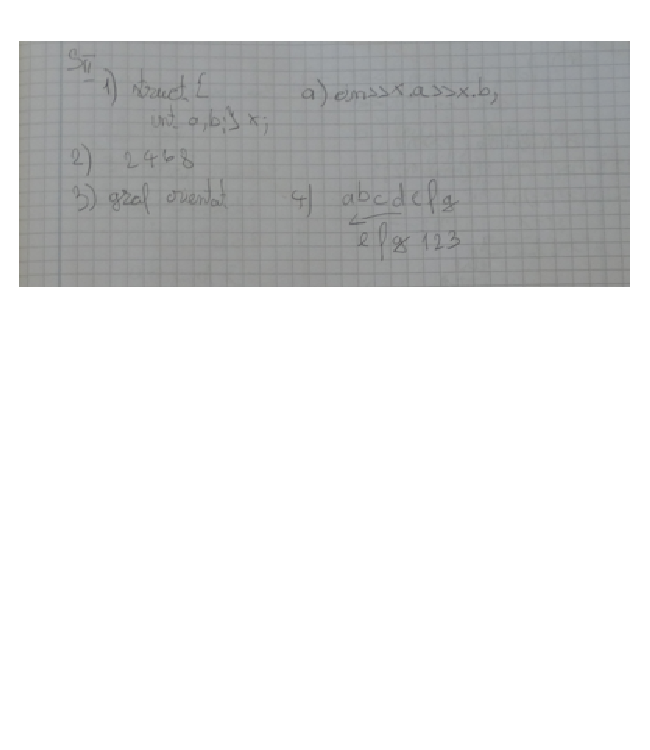 SII
1) struct { a) cin>>x.a>>x.b;
int a,b;} x;
2) 2468
3) graf orientat 4) abcdefg
efg 123